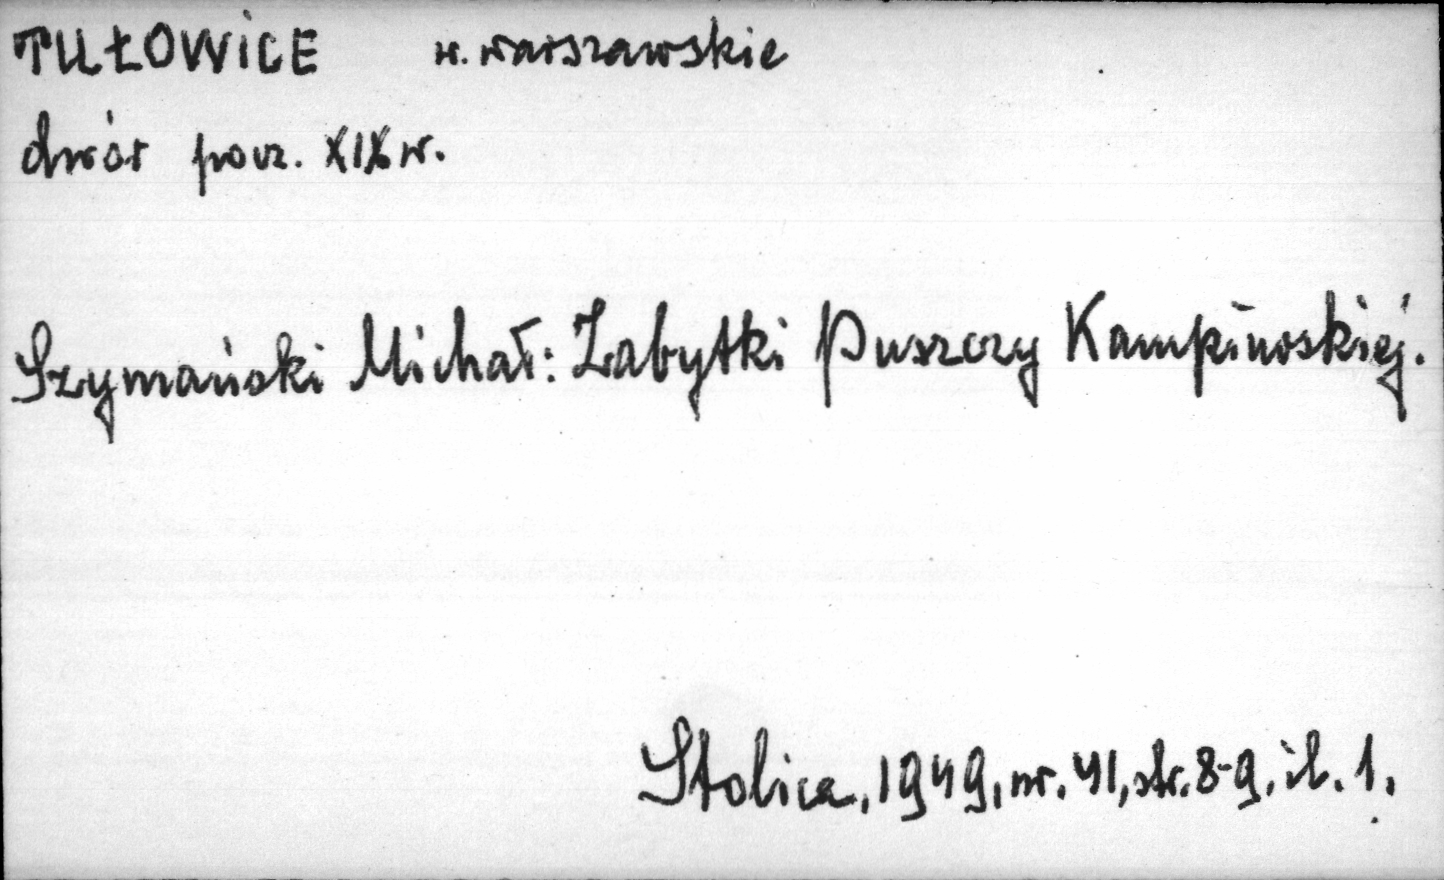 TUŁOWICE w. warszawskie
dwór pocz. XIX w.
Szymański Michał: Zabytki Puszczy Kampinoskiej.
Stolica, 1949, nr. 41, str. 8-9, il. 1.